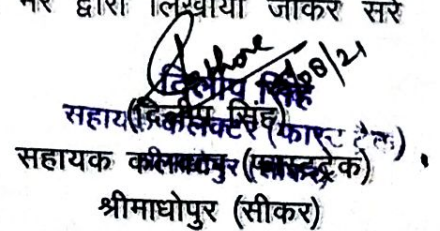 मेरे द्वारा लिखाया जाकर सरे
Rathore
/08/21
दिलीप सिंह
(दिलीप सिंह)
सहायक कलक्टर (फास्ट ट्रेक)
सहायक कलक्टर (फास्ट ट्रेक)
श्रीमाधोपुर (सीकर)